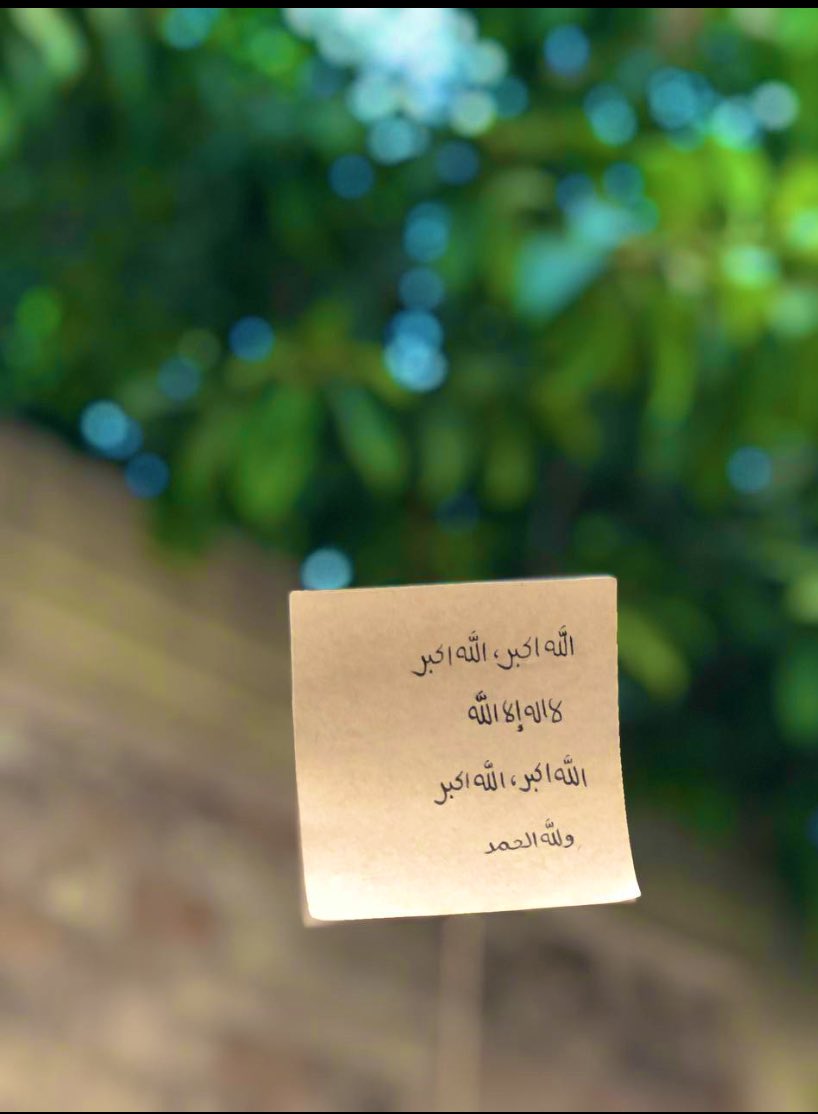 اللَّه اكبر، اللَّه اكبر
لا اله إلا اللَّه
اللَّه اكبر، اللَّه اكبر
وللَّه الحمد